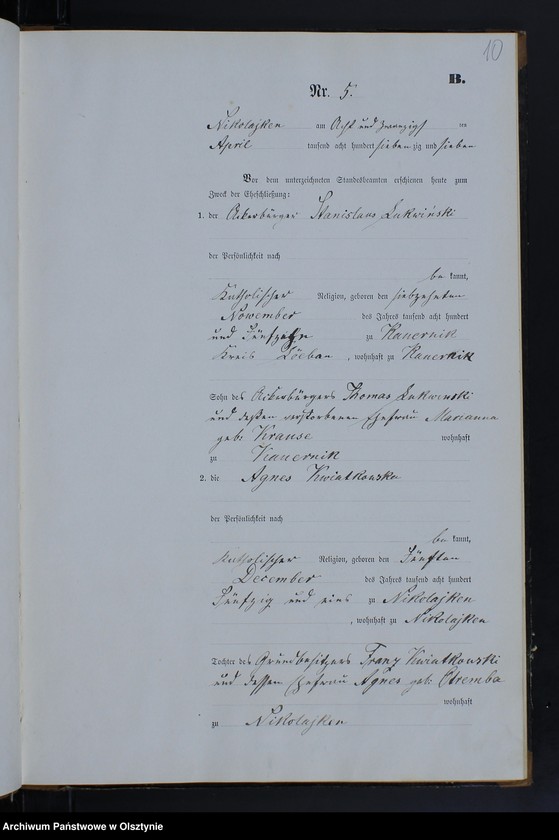 10
B.
Nr. 5.
Nikolajken am Acht und zwanzigst en
April tausend acht hundert sieben zig und sieben
Vor dem unterzeichneten Standesbeamten erschienen heute zum
Zweck der Eheschließung:
1. der Ackerbürger Stanislaus Lukwiński
der Persönlichkeit nach
be kannt,
Katholischer Religion, geboren den siebzehnten
November des Jahres tausend acht hundert
und fünfzehn zu Kauernik
Kreis Löebau, wohnhaft zu Kauernik
Sohn des Ackerbürgers Thomas Lukwinski
und dessen verstorbenen Ehefrau Marianna
geb. Krause wohnhaft
zu Kauernik
2. die Agnes Kwiatkowska
der Persönlichkeit nach
be kannt,
katholischer Religion, geboren den Fünften
December des Jahres tausend acht hundert
Fünfzig und eins zu Nikolajken
, wohnhaft zu Nikolajken
Tochter des Grundbesitzers Franz Kwiatkowski
und dessen Ehefrau Agnes geb. Otremba
wohnhaft
zu Nikolajken
Archiwum Państwowe w Olsztynie